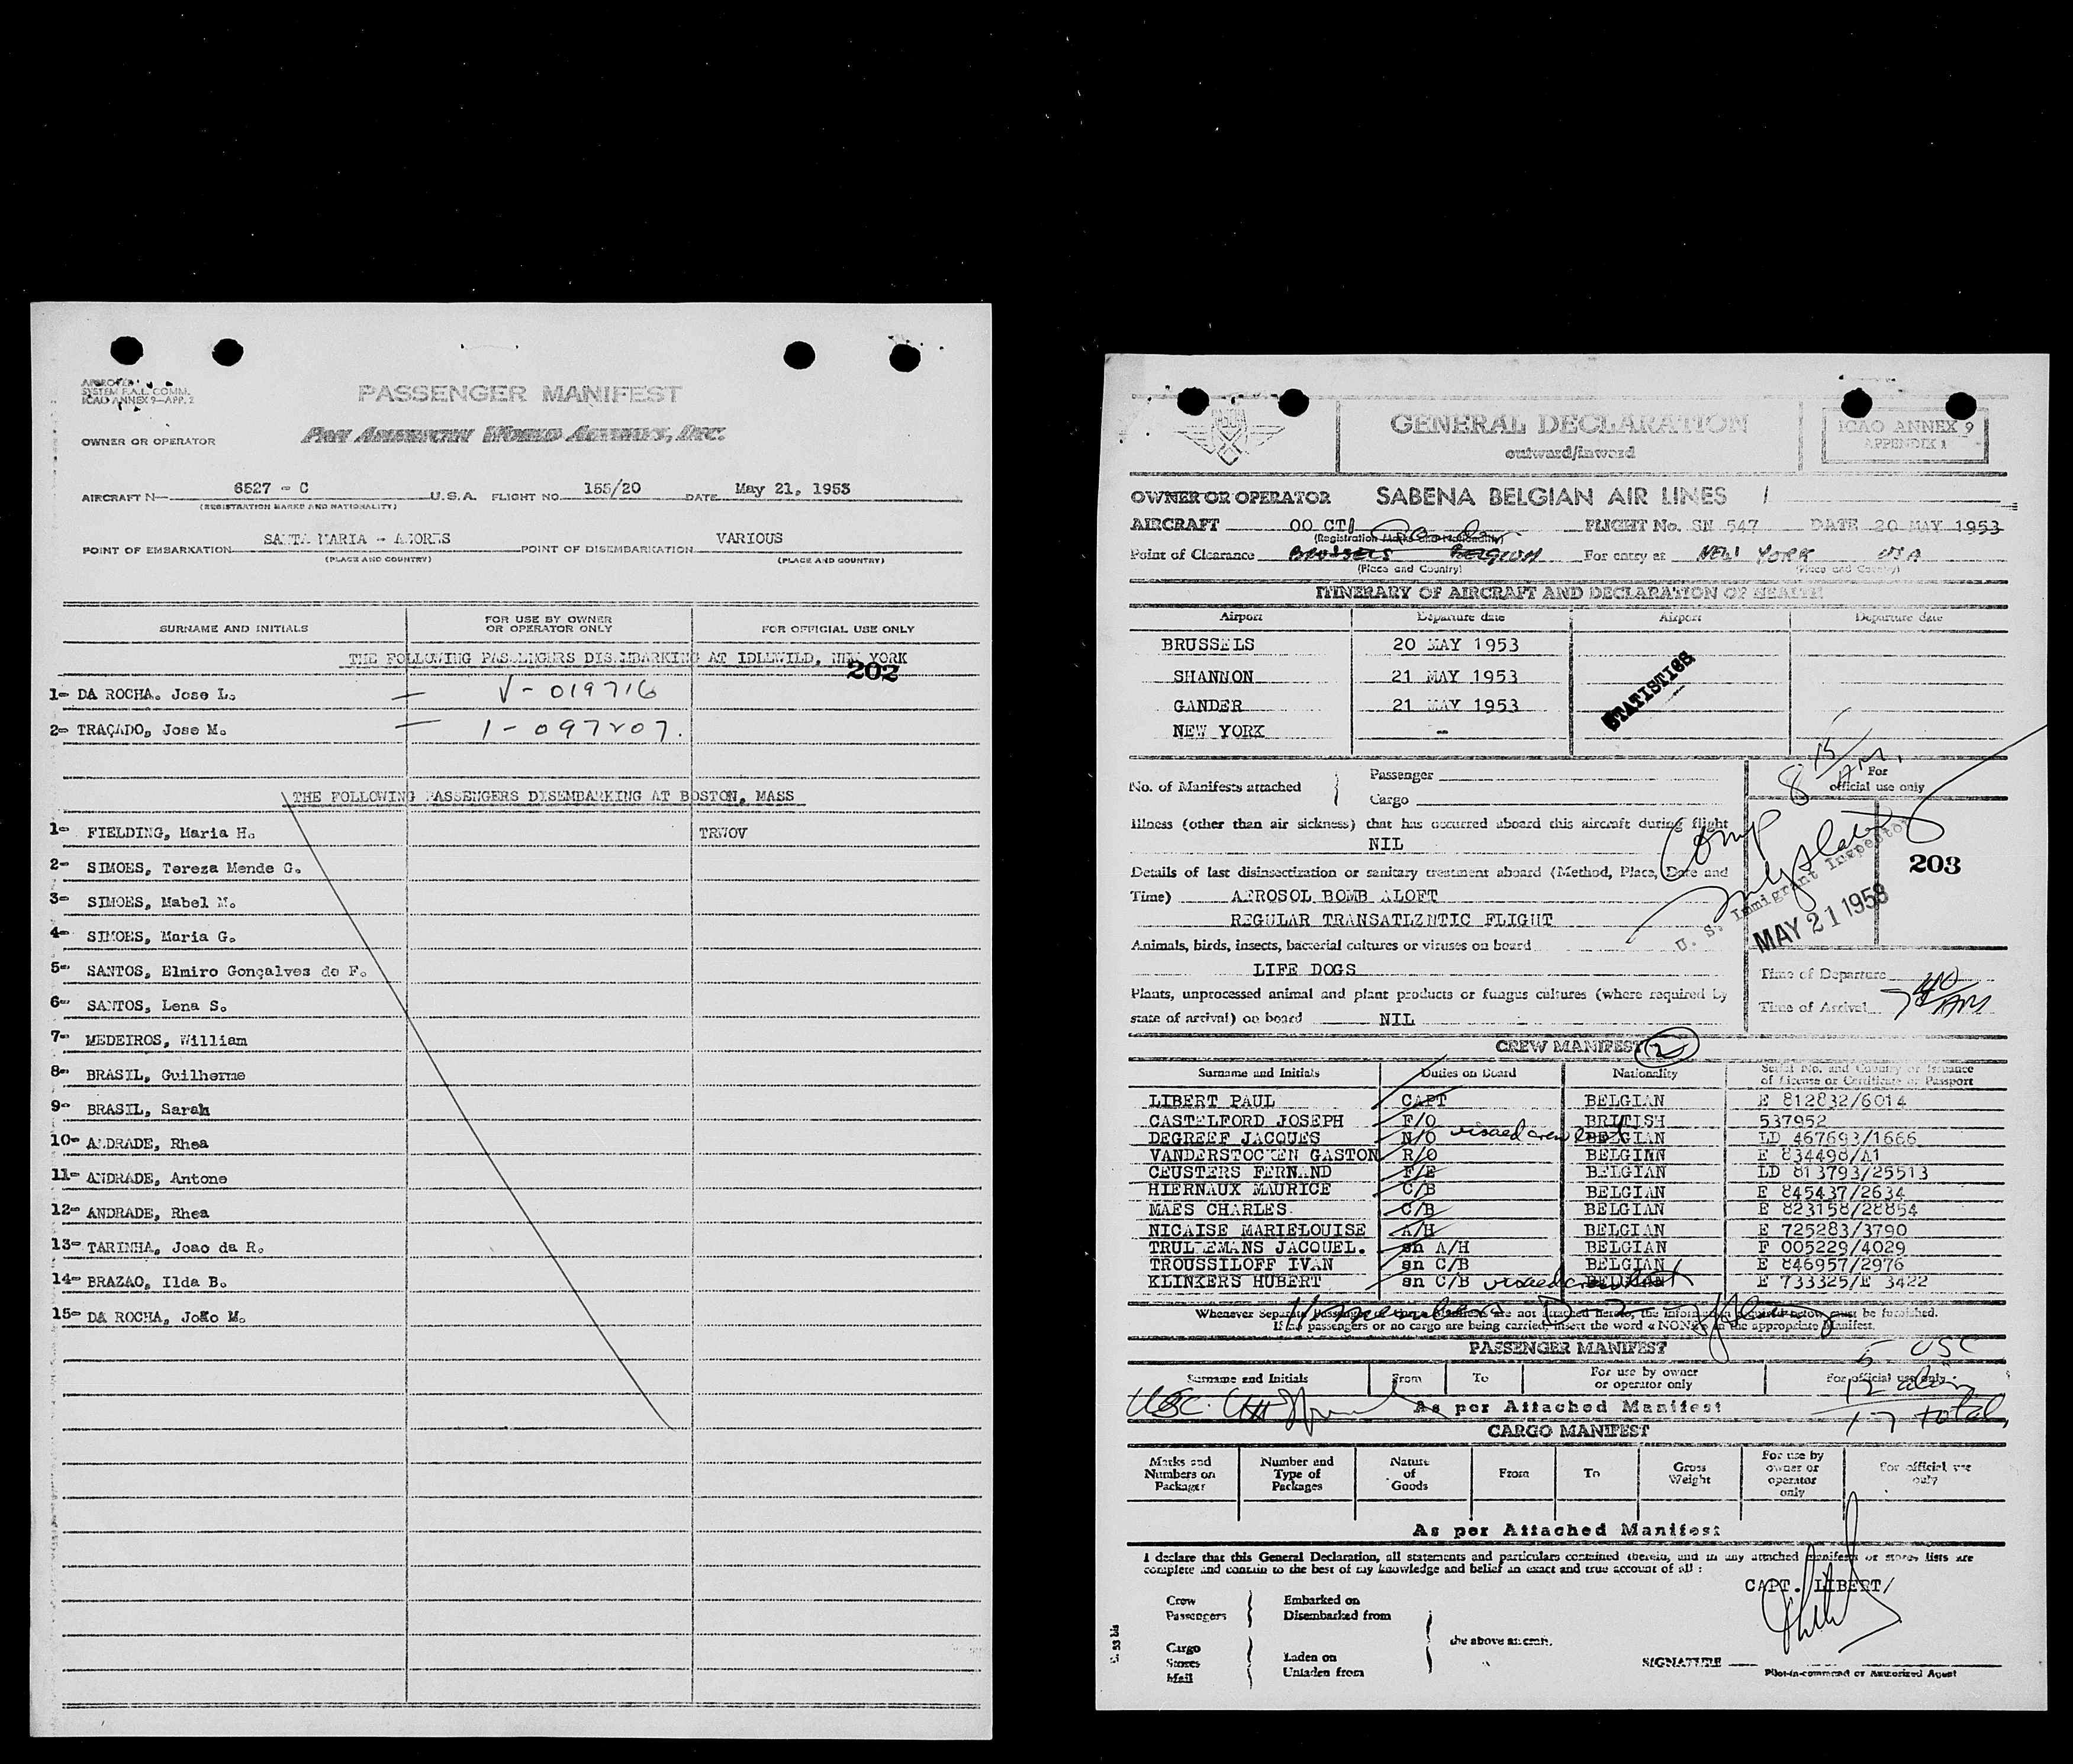 APPROVED
SYSTEM F.A.L. COMM.
ICAO ANNEX 9—APP. 2
PASSENGER MANIFEST
OWNER OR OPERATOR
PAN AMERICAN WORLD AIRWAYS, INC.
AIRCRAFT N— 6527 - C U.S.A. FLIGHT NO. 155/20 DATE May 21, 1953
(REGISTRATION MARKS AND NATIONALITY)
POINT OF EMBARKATION SANTA MARIA - AZORES POINT OF DISEMBARKATION VARIOUS
(PLACE AND COUNTRY) (PLACE AND COUNTRY)
SURNAME AND INITIALS FOR USE BY OWNER OR OPERATOR ONLY FOR OFFICIAL USE ONLY
THE FOLLOWING PASSENGERS DISEMBARKING AT IDLEWILD, NEW YORK
202
1- DA ROCHA. Jose L. — V - 019716
2- TRAÇADO, Jose M. — 1 - 097207.
THE FOLLOWING PASSENGERS DISEMBARKING AT BOSTON, MASS
1- FIELDING, Maria H. TRWOV
2- SIMOES, Tereza Mende G.
3- SIMOES, Mabel M.
4- SIMOES, Maria G.
5- SANTOS, Elmiro Gonçalves de F.
6- SANTOS, Lena S.
7- MEDEIROS, William
8- BRASIL, Guilherme
9- BRASIL, Sarah
10- ANDRADE, Rhea
11- ANDRADE, Antone
12- ANDRADE, Rhea
13- TARINHA, Joao da R.
14- BRAZAO, Ilda B.
15- DA ROCHA, João M.
GENERAL DECLARATION
outward/inward
ICAO ANNEX 9
APPENDIX 1
OWNER OR OPERATOR SABENA BELGIAN AIR LINES
AIRCRAFT OO CTI FLIGHT No. SN 547 DATE 20 MAY 1953
(Registration Marks and Nationality)
Point of Clearance BRUSSELS BELGIUM For entry at NEW YORK USA
(Place and Country) (Place and Country)
ITINERARY OF AIRCRAFT AND DECLARATION OF HEALTH
Airport Departure date Airport Departure date
BRUSSELS 20 MAY 1953
SHANNON 21 MAY 1953
GANDER 21 MAY 1953
NEW YORK -
STATISTICS
No. of Manifests attached Passenger
Cargo
For
official use only
Comp 8 15/AM.
Illness (other than air sickness) that has occurred aboard this aircraft during flight
NIL
203
Details of last disinsectization or sanitary treatment aboard (Method, Place, Date and
Time) AEROSOL BOMB ALOFT
REGULAR TRANSATLZNTIC FLIGHT
U. S. Immigrant Inspector
MAY 21 1953
Animals, birds, insects, bacterial cultures or viruses on board
LIFE DOGS
Plants, unprocessed animal and plant products or fungus cultures (where required by
state of arrival) on board NIL
Time of Departure
Time of Arrival 7 40 AM
CREW MANIFEST 2
Surname and Initials Duties on Board Nationality Serial No. and Country of Issuance of License or Certificate or Passport
LIBERT PAUL CAPT BELGIAN E 812832/6014
CASTELFORD JOSEPH F/O BRITISH 537952
DEGREEF JACQUES N/O visaed crew list BELGIAN LD 467693/1666
VANDERSTOCKEN GASTON R/O BELGINN E 834498/A1
CEUSTERS FERNAND F/E BELGIAN LD 813793/25513
HIERNAUX MAURICE C/B BELGIAN E 845437/2634
MAES CHARLES. C/B BELGIAN E 823158/28854
NICAISE MARIELOUISE A/H BELGIAN E 725283/3790
TRULLEMANS JACQUEL. sn A/H BELGIAN F 005229/4029
TROUSSILOFF IVAN sn C/B BELGIAN E 846957/2976
KLINKERS HUBERT sn C/B visaed crew list BELGIAN E 733325/E 3422
Whenever Separate Passenger or Cargo Manifests are not attached hereto, the information required below must be furnished.
If no passengers or no cargo are being carried, insert the word « NONE » in the appropriate Manifest.
PASSENGER MANIFEST
5 USC
Surname and Initials From To For use by owner or operator only For official use only
12 alien
As per Attached Manifest
17 total
CARGO MANIFEST
Marks and Numbers on Packager Number and Type of Packages Nature of Goods From To Gross Weight For use by owner or operator only For official use only
As per Attached Manifest
I declare that this General Declaration, all statements and particulars contained therein, and in any attached manifests or stores lists are
complete and contain to the best of my knowledge and belief an exact and true account of all :
CAPT. LIBERT/
Crew Embarked on
Passengers Disembarked from
the above aircraft.
Cargo Laden on
Stores
Mail Unladen from
SIGNATURE
Pilot-in-command or Authorized Agent